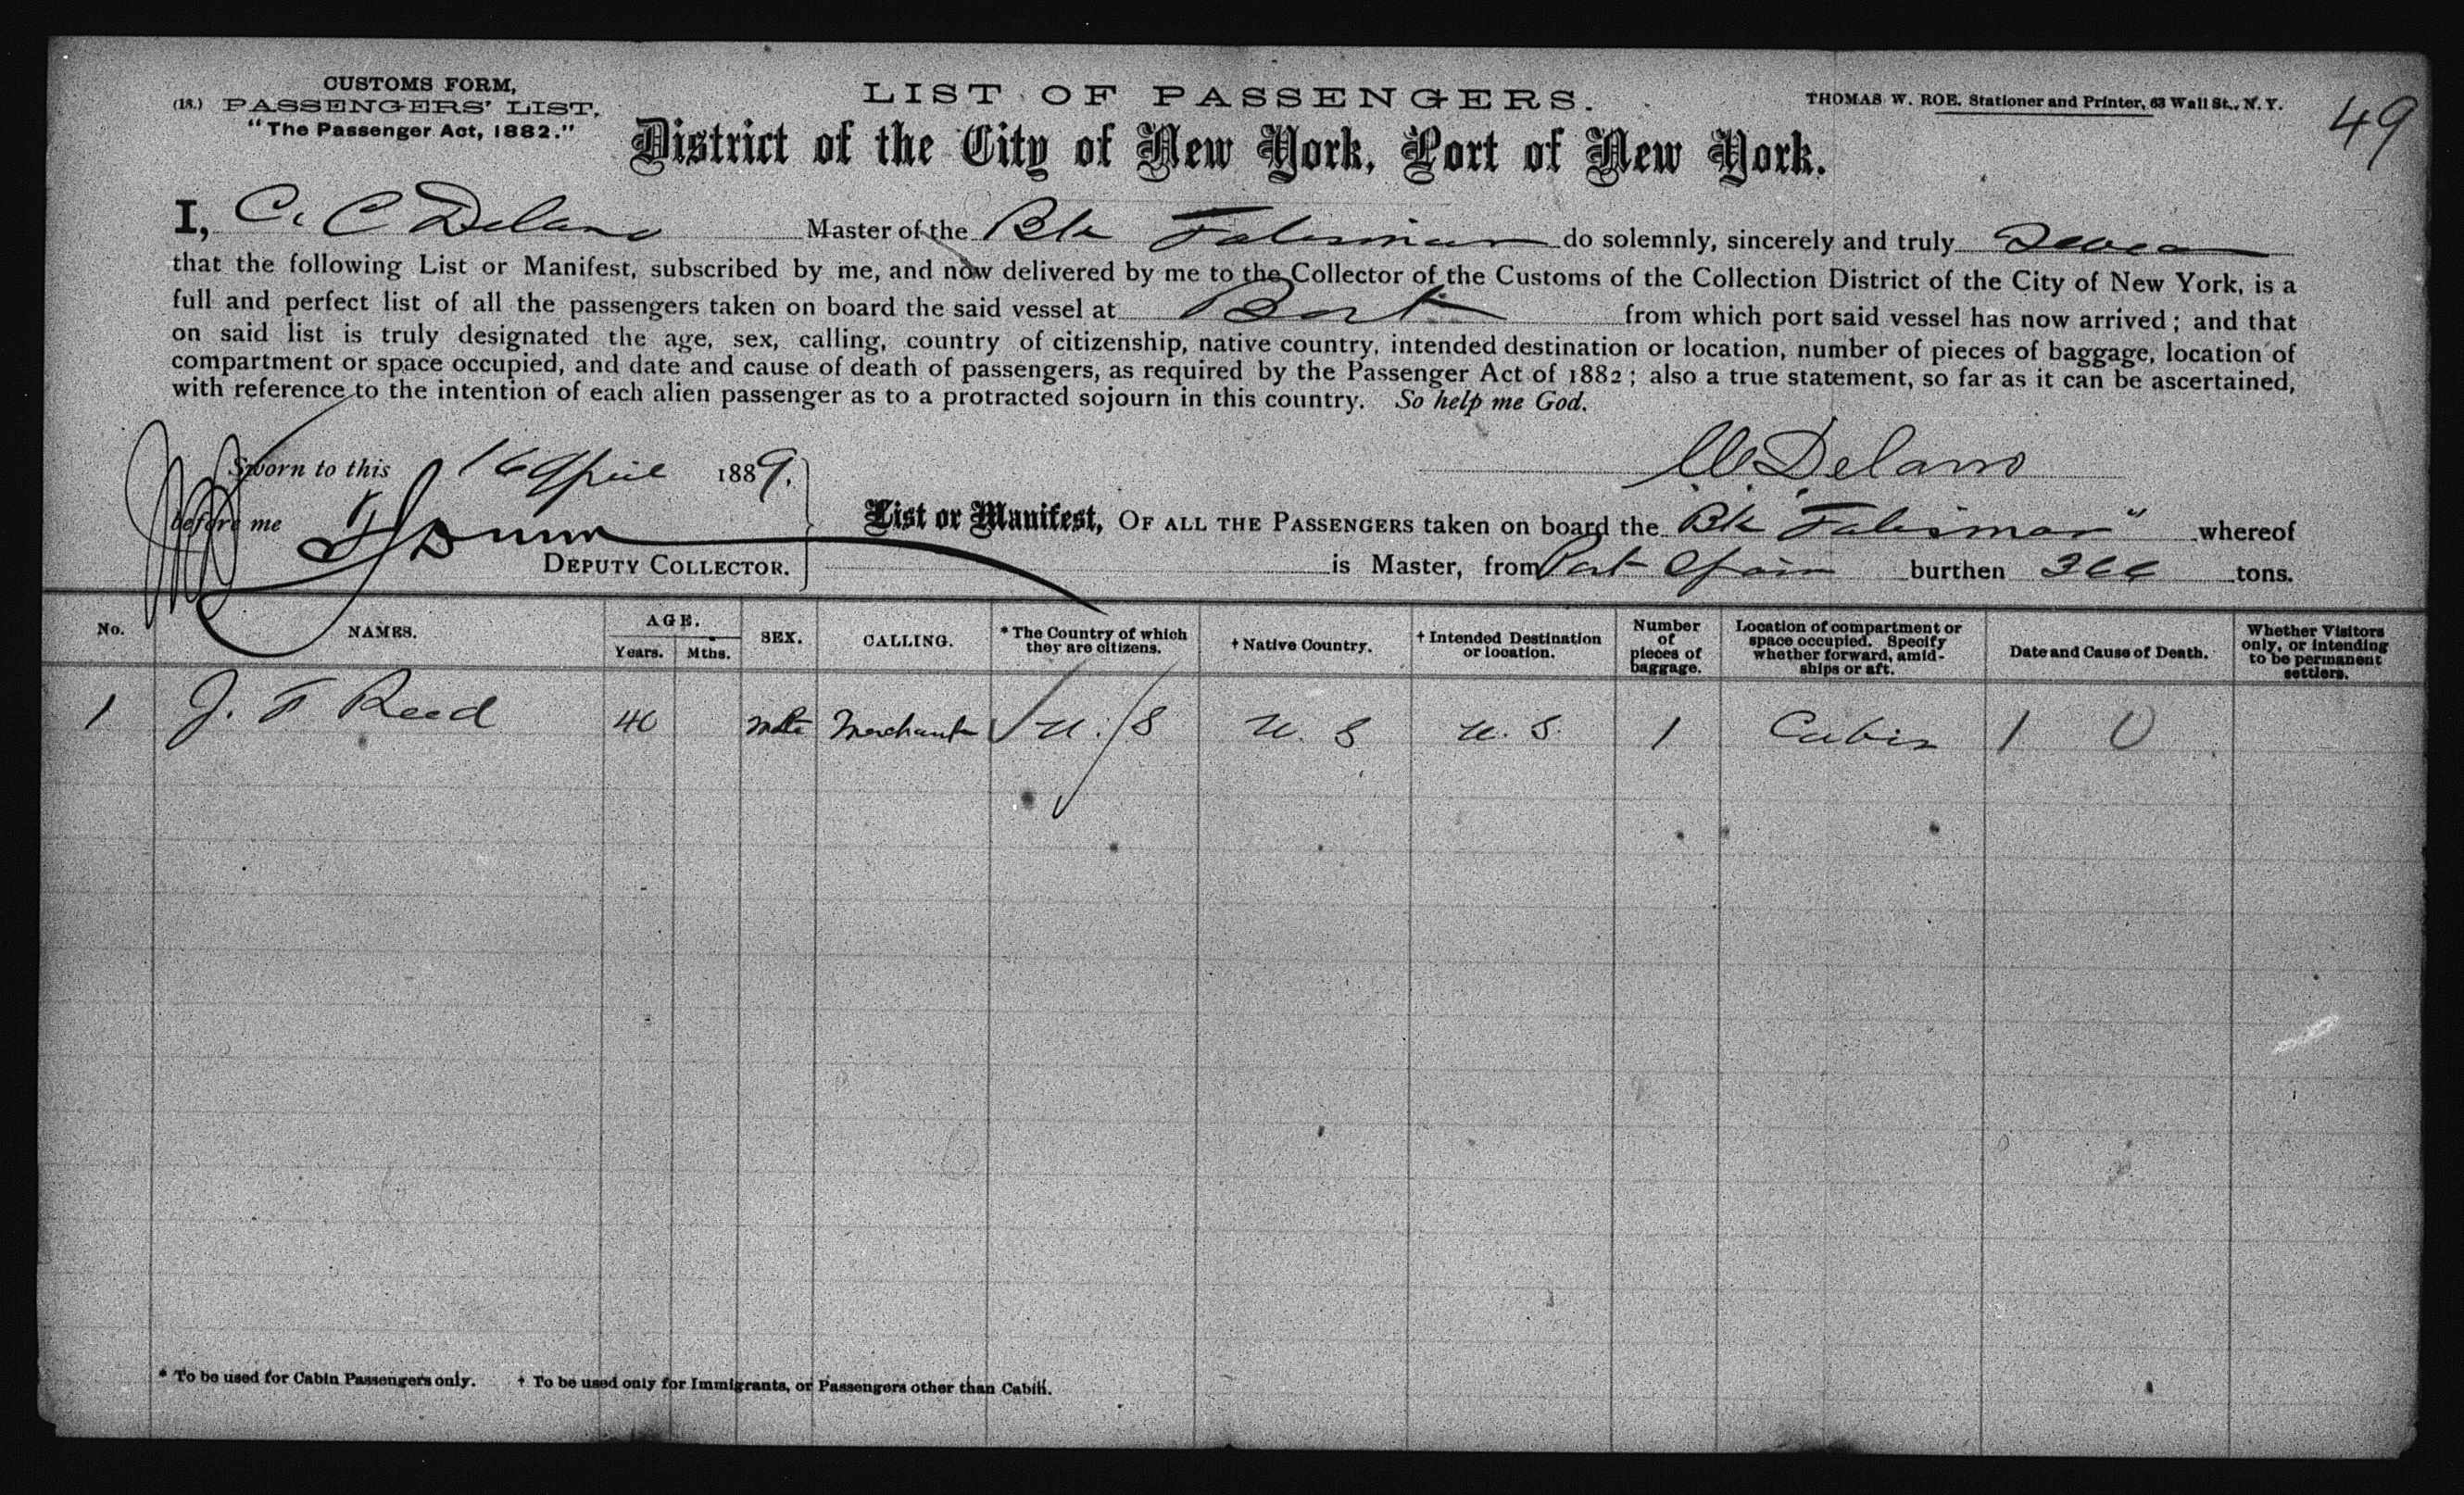 CUSTOMS FORM,
(18.) PASSENGERS' LIST,
"The Passenger Act, 1882."
LIST OF PASSENGERS.
THOMAS W. ROE, Stationer and Printer, 63 Wall St., N. Y.
49
District of the City of New York, Port of New York.
I, C. C Delano Master of the Bk Talisman do solemnly, sincerely and truly
that the following List or Manifest, subscribed by me, and now delivered by me to the Collector of the Customs of the Collection District of the City of New York, is a
full and perfect list of all the passengers taken on board the said vessel at from which port said vessel has now arrived; and that
on said list is truly designated the age, sex, calling, country of citizenship, native country, intended destination or location, number of pieces of baggage, location of
compartment or space occupied, and date and cause of death of passengers, as required by the Passenger Act of 1882; also a true statement, so far as it can be ascertained,
with reference to the intention of each alien passenger as to a protracted sojourn in this country. So help me God.
CC Delano
Sworn to this 16 April 1889.
before me
DEPUTY COLLECTOR.
List or Manifest, OF ALL THE PASSENGERS taken on board the Bk Talisman" whereof
is Master, from Port Spain burthen 366 tons.
No. NAMES. AGE. Years. Mths. SEX. CALLING. * The Country of which they are citizens. † Native Country. † Intended Destination or location. Number of pieces of baggage. Location of compartment or space occupied. Specify whether forward, amidships or aft. Date and Cause of Death. Whether Visitors only, or intending to be permanent settlers.
1 J. F Reed 40 Male Merchant U. S U. S U. S. 1 Cabin 1 0
* To be used for Cabin Passengers only. † To be used only for Immigrants, or Passengers other than Cabin.